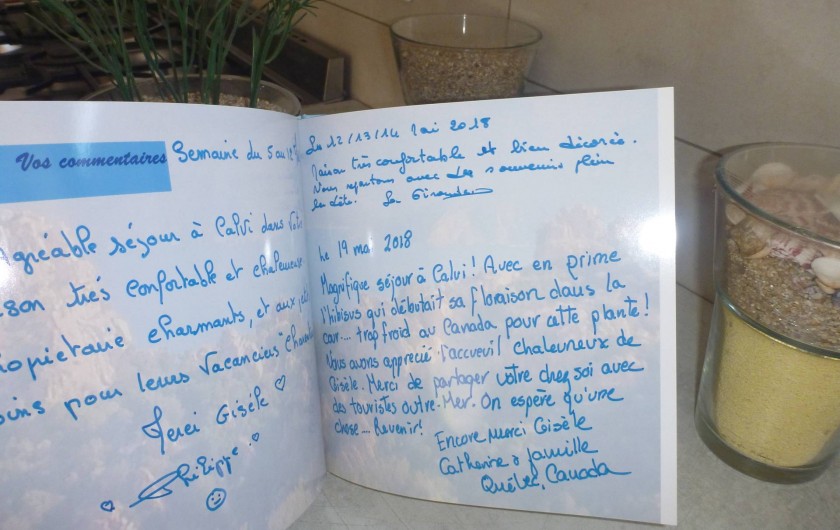 Vos commentaires
Semaine du 5 au 12
gréable séjour à Calvi dans Votre
son très confortable et chaleureuse
ropietaire charmants, et aux
oins pour leurs Vacanciers
Merci Gisèle
Philippe
Le 12/13/14 Mai 2018
Maison très confortable et bien décorée.
Nous repartons avec des souvenirs plein
la tête. Les Girondins
Le 19 mai 2018
Magnifique séjour à Calvi! Avec en prime
l'hibisus qui débutait sa floraison dans la
cour... trop froid au Canada pour cette plante!
Nous avons apprécié l'accueuil chaleureux de
Gisèle. Merci de partager votre chez soi avec
des touristes outre-Mer. On espère qu'une
chose... Revenir!
Encore Merci Gisèle
Catherine & famille
Québec, Canada